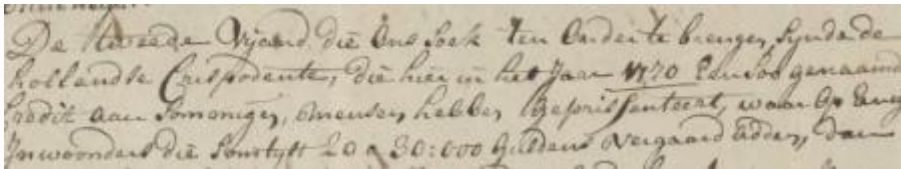 De tweede Vijand die ons soek ten onder te brengen, synde de
hollandse Crispodente, die hier in het Jaar 1770 Een soo genaamd
Credit aan Sommige, mensen, hebben Gepresenteert, waar op
Inwoonders die Somtyts 20 a 30:000 guldens vergaard adden, dan